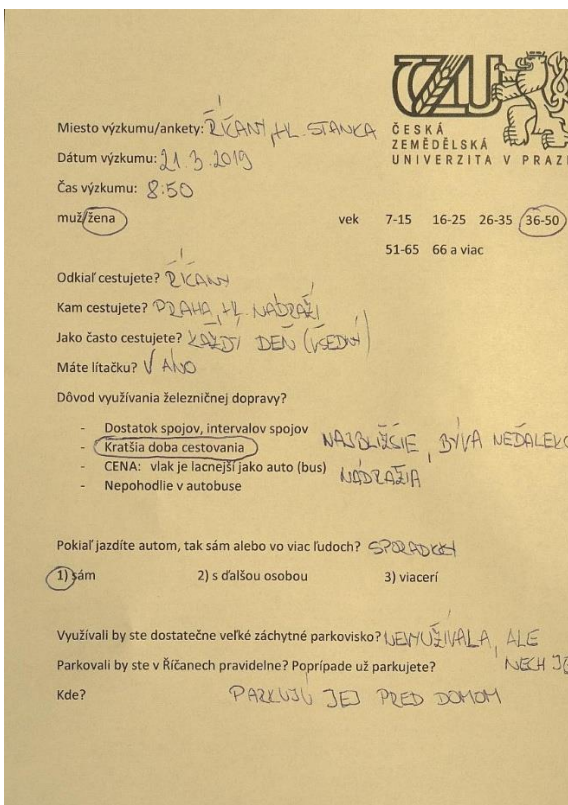 ČESKÁ
ZEMĚDĚLSKÁ
UNIVERZITA V PRAZE
Miesto výzkumu/ankety: ŘÍČANY, HL. STANICA
Dátum výzkumu: 21.3.2019
Čas výzkumu: 8:50
muž/žena vek 7-15 16-25 26-35 36-50
51-65 66 a viac
Odkiaľ cestujete? ŘÍČANY
Kam cestujete? PRAHA, HL. NÁDRAŽÍ
Jako často cestujete? KAŽDÝ DEŇ (VŠEDNÝ)
Máte lítačku? √ ÁNO
Dôvod využívania železničnej dopravy?
- Dostatok spojov, intervalov spojov
- Kratšia doba cestovania NAJBLIŽŠIE, BÝVA NEĎALEKO
- CENA: vlak je lacnejší jako auto (bus) NÁDRAŽIA
- Nepohodlie v autobuse
Pokiaľ jazdíte autom, tak sám alebo vo viac ľudoch? SPORADICKY
1) sám 2) s ďalšou osobou 3) viacerí
Využívali by ste dostatečne veľké záchytné parkovisko? NEVYUŽÍVALA, ALE
Parkovali by ste v Říčanech pravidelne? Poprípade už parkujete? NECH JE
Kde? PARKUJÚ JEJ PRED DOMOM